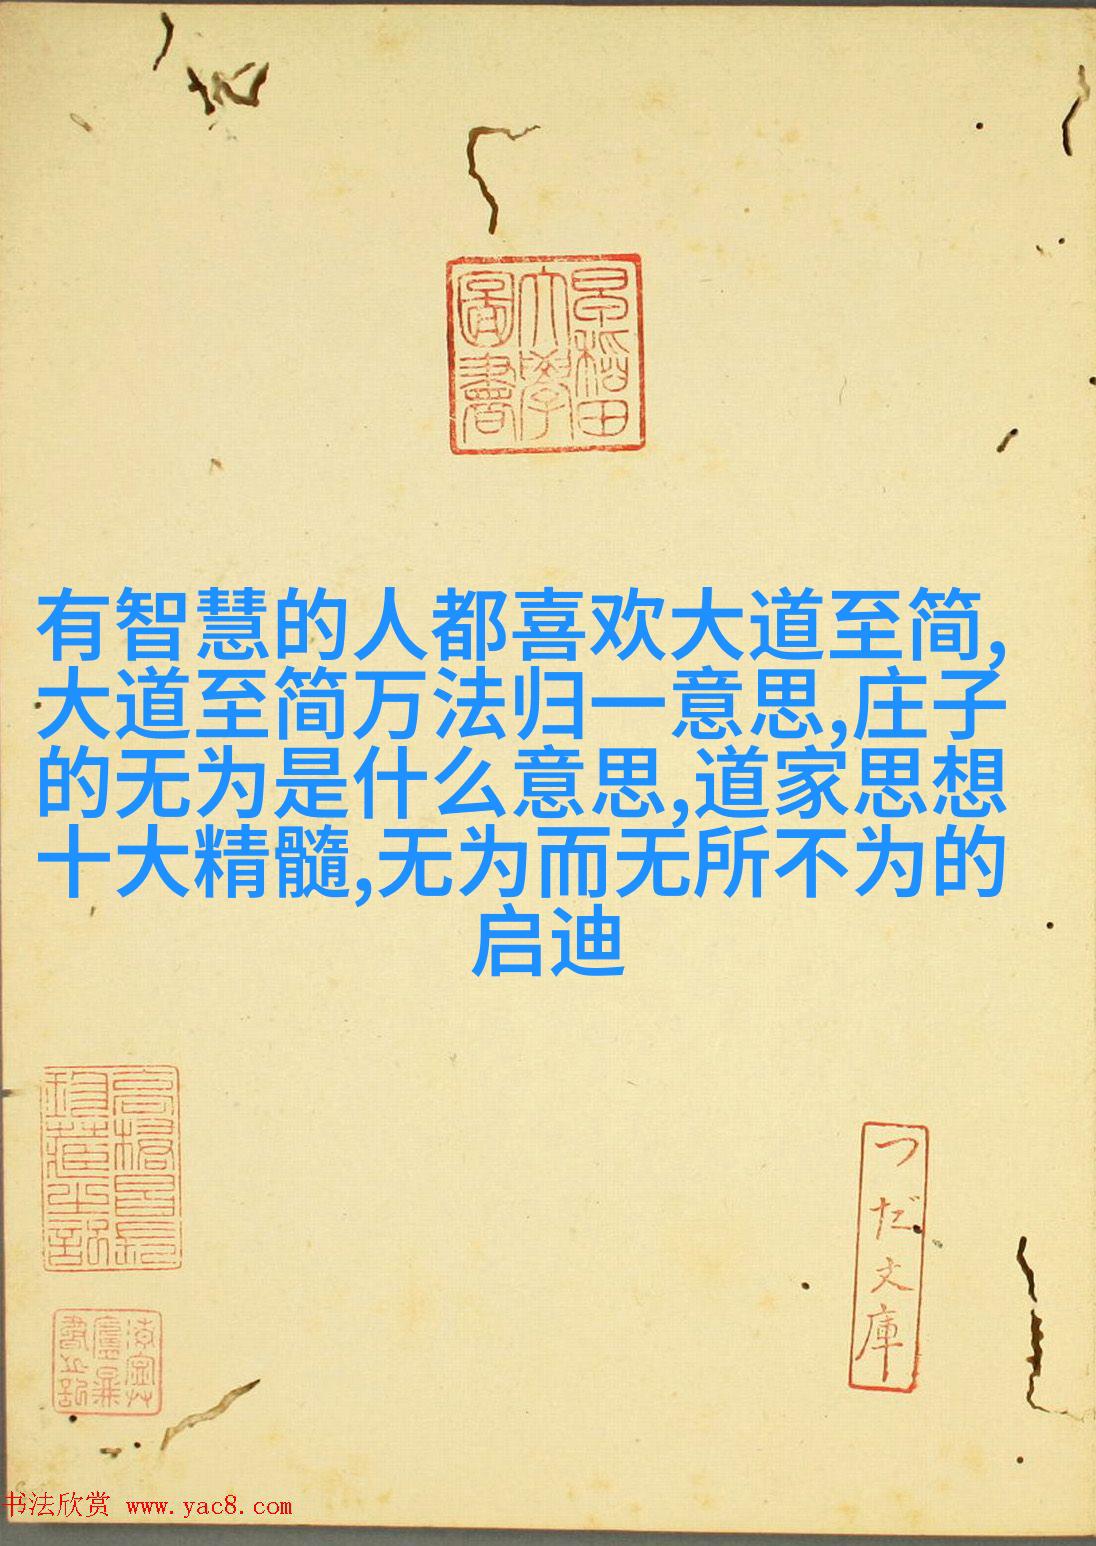 早稲田
大學
圖書
有智慧的人都喜欢大道至简,
大道至简万法归一意思,庄子
的无为是什么意思,道家思想
十大精髓,无为而无所不为的
启迪
つだ文庫
书法欣赏 www.yac8.com